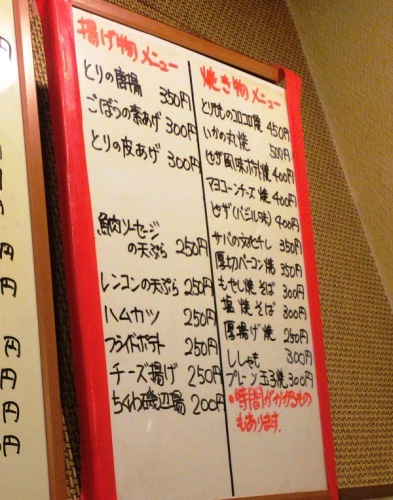 揚げ物メニュー
とりの唐揚 350円
ごぼうの素あげ 300円
とりの皮あげ 300円
魚肉ソーセージ
の天ぷら 250円
レンコンの天ぷら 250円
ハムカツ 250円
フライドポテト 250円
チーズ揚げ 250円
ちくわ磯辺揚 200円
焼き物メニュー
とりもものコロコロ焼 450円
いかの丸焼 500円
ピザ風味ポテト焼 400円
マヨコーンチーズ焼 400円
ピザ(バジル味) 400円
サバの文化干し 350円
厚切ベーコン焼 350円
もやし焼そば 300円
塩焼そば 300円
厚揚げ焼 250円
ししゃも 300円
プレーン玉子焼 300円
・時間がかかるもの
もあります。
円
円
円
円
円
円